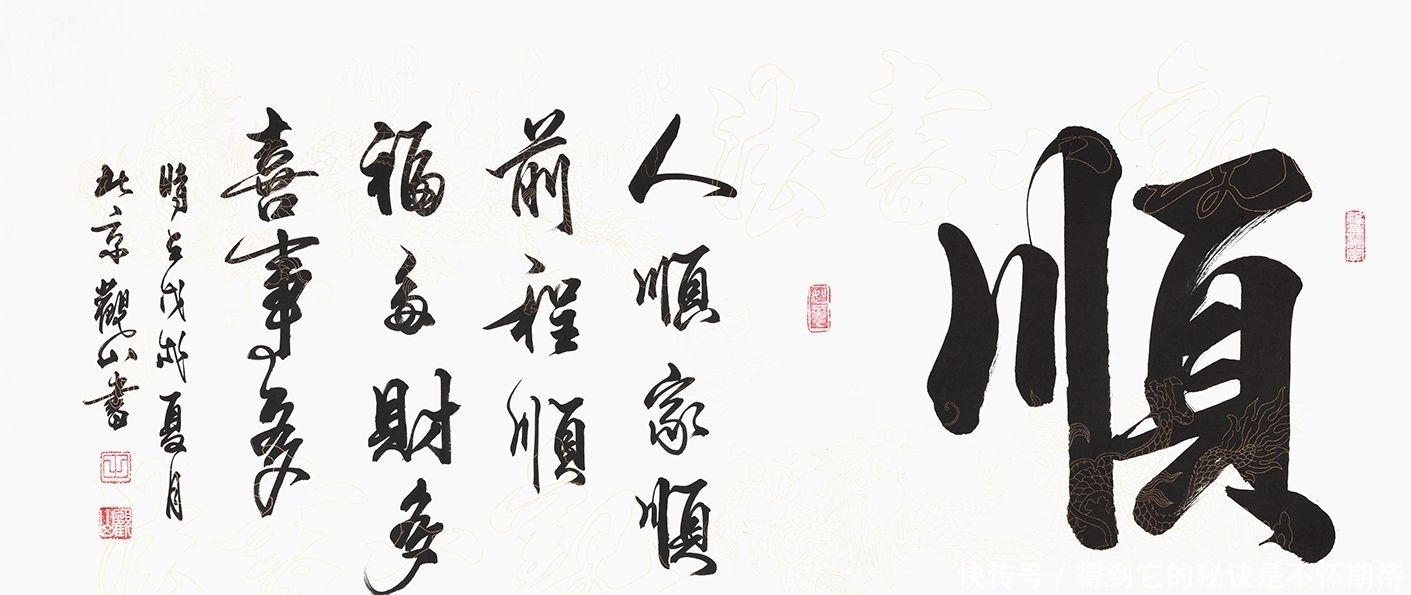 順
如意
人順家順
前程順
福多財多
喜事多
時在戊戌夏月
北京觀山書
快传号 / 得到它的秘诀是不怀期待